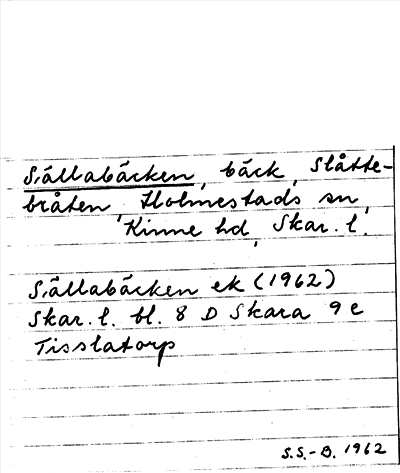 Sällabäcken, bäck, Slåtte-
bråten, Holmestads sn,
Kinne hd, Skar. l.
Sällabäcken ek (1962)
Skar. l. bl. 8 D Skara 9 e
Tisslatorp
S.S.-B. 1962